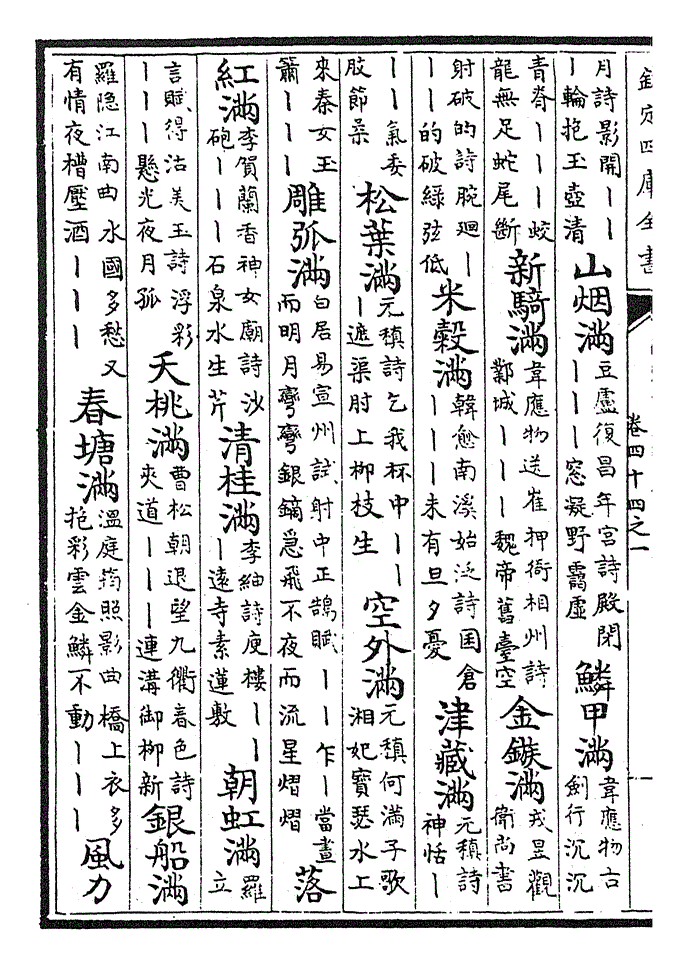 欽定四庫全書 卷四十四之一
月詩影開｜｜
｜輪抱玉壺清
山烟滿
豆盧復昌年宮詩殿閉
｜｜｜窓凝野靄虛
鱗甲滿
韋應物古
劍行沉沉
青脊｜｜｜蛟
龍無足蛇尾斷
新騎滿
韋應物送崔押衙相州詩
鄴城｜｜｜魏帝舊臺空
金鏃滿
戎昱觀
衛尚書
射破的詩腕廻｜
｜｜的破緑弦低
米穀滿
韓愈南溪始泛詩囷倉
｜｜｜未有旦夕憂
津藏滿
元稹詩
神恬｜
｜｜氣委
肢節柔
松葉滿
元稹詩乞我杯中｜｜
｜遮渠肘上柳枝生
空外滿
元稹何滿子歌
湘妃寶瑟水上
來秦女玉
簫｜｜｜
雕弧滿
白居易宣州試射中正鵠賦｜｜乍｜當晝
而明月彎彎銀鏑急飛不夜而流星熠熠
落
紅滿
李賀蘭香神女廟詩沙
砲｜｜｜石泉水生芹
清桂滿
李紳詩庾樓｜｜
｜遠寺素蓮敷
朝虹滿
羅
立
言賦得沽美玉詩浮彩
｜｜｜懸光夜月孤
夭桃滿
曹松朝退望九衢春色詩
夾道｜｜｜連溝御柳新
銀船滿
羅隐江南曲水國多愁又
有情夜槽壓酒｜｜｜
春塘滿
溫庭筠照影曲橋上衣多
抱彩雲金鱗不動｜｜｜
風力